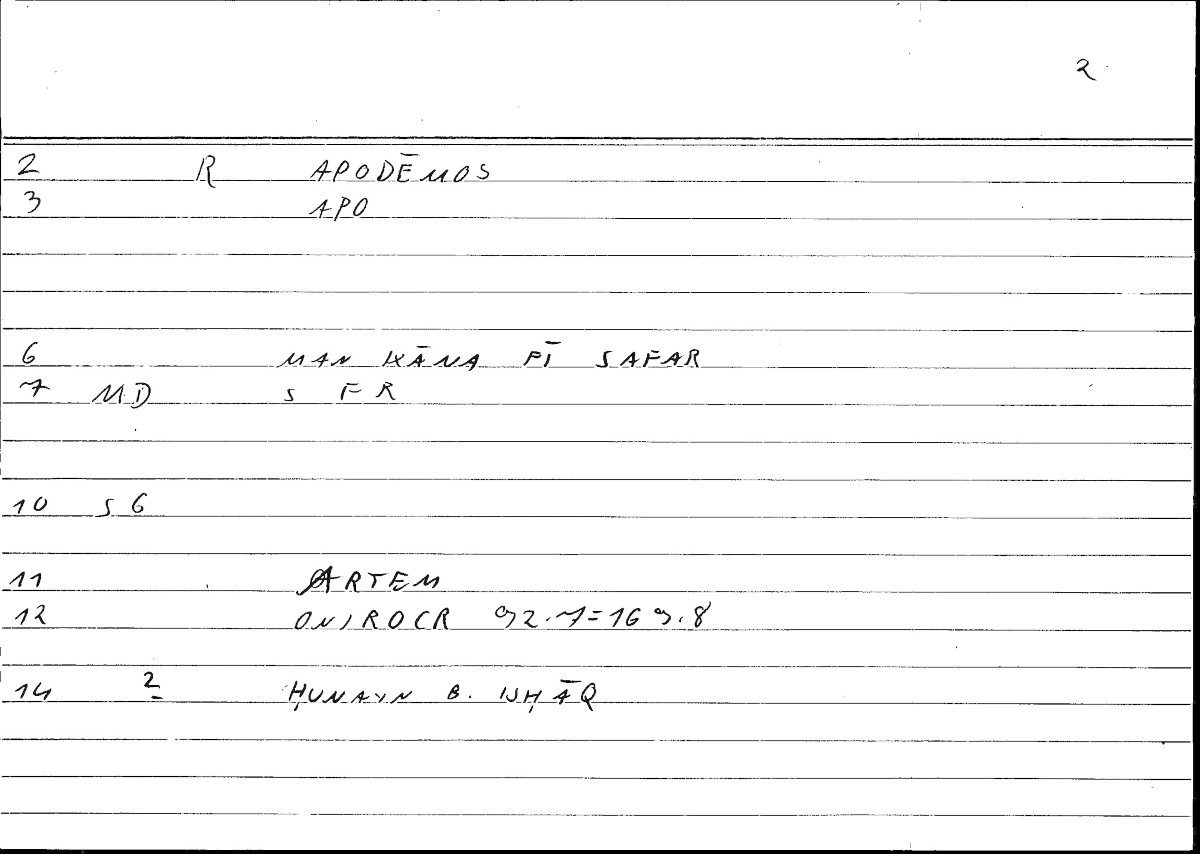 2
2 R APODĒMOS
3 APO
6 MAN KĀNA FĪ SAFAR
7 MD S F R
10 S G
11 ARTEM
12 ONIROCR 92.7=169.8
14 2 ḤUNAYN B. ISḤĀQ